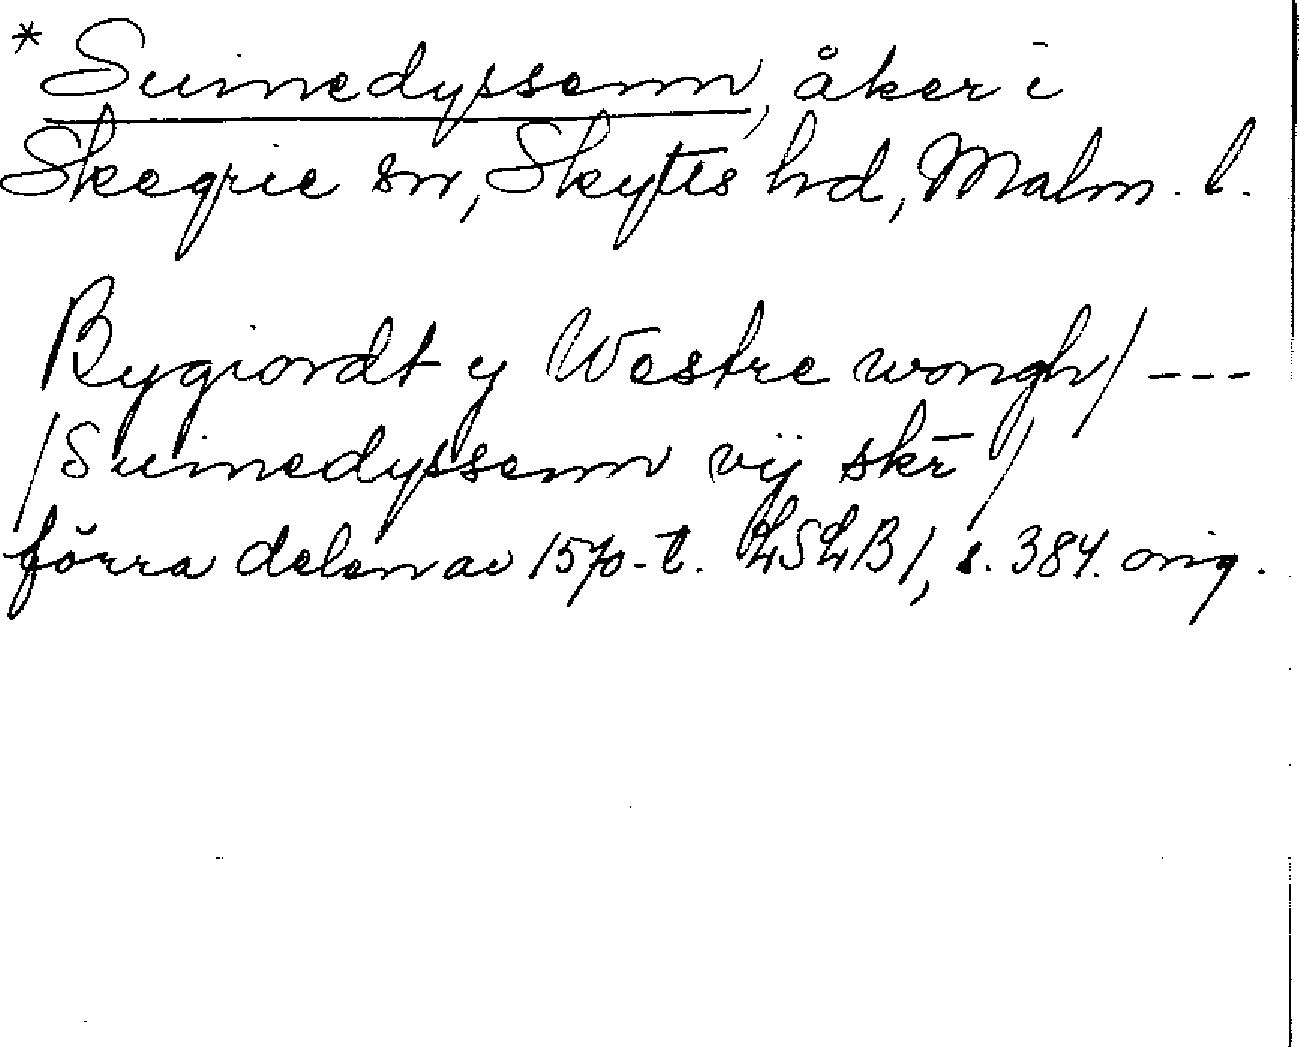 *Suinedyssenn, åker i
Skegrie sn, Skytts hd, Malm. l.
Bygiordt y Westre wongh/ ---
/Suinedyssenn vij skr̄/
förra delen av 1570-t. LSLB1, s. 384. orig.